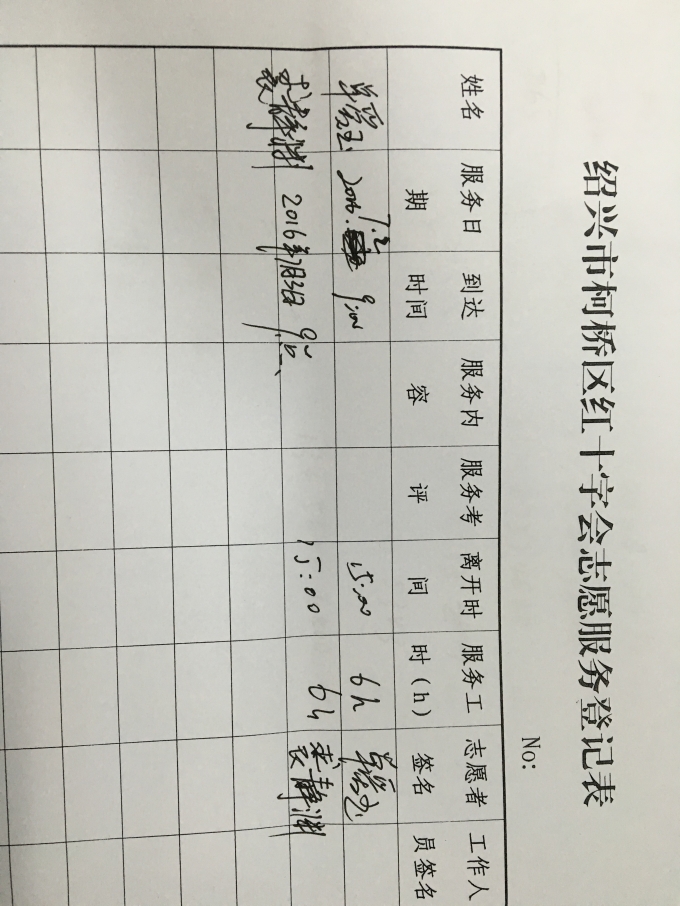 绍兴市柯桥区红十字会志愿服务登记表
No:
姓名 服务日期 到达时间 服务内容 服务考评 离开时间 服务工时(h) 志愿者签名 工作人员签名
2016.7.2 9:00 15:00 6h
2016年7月3日 9:00 15:00 6h